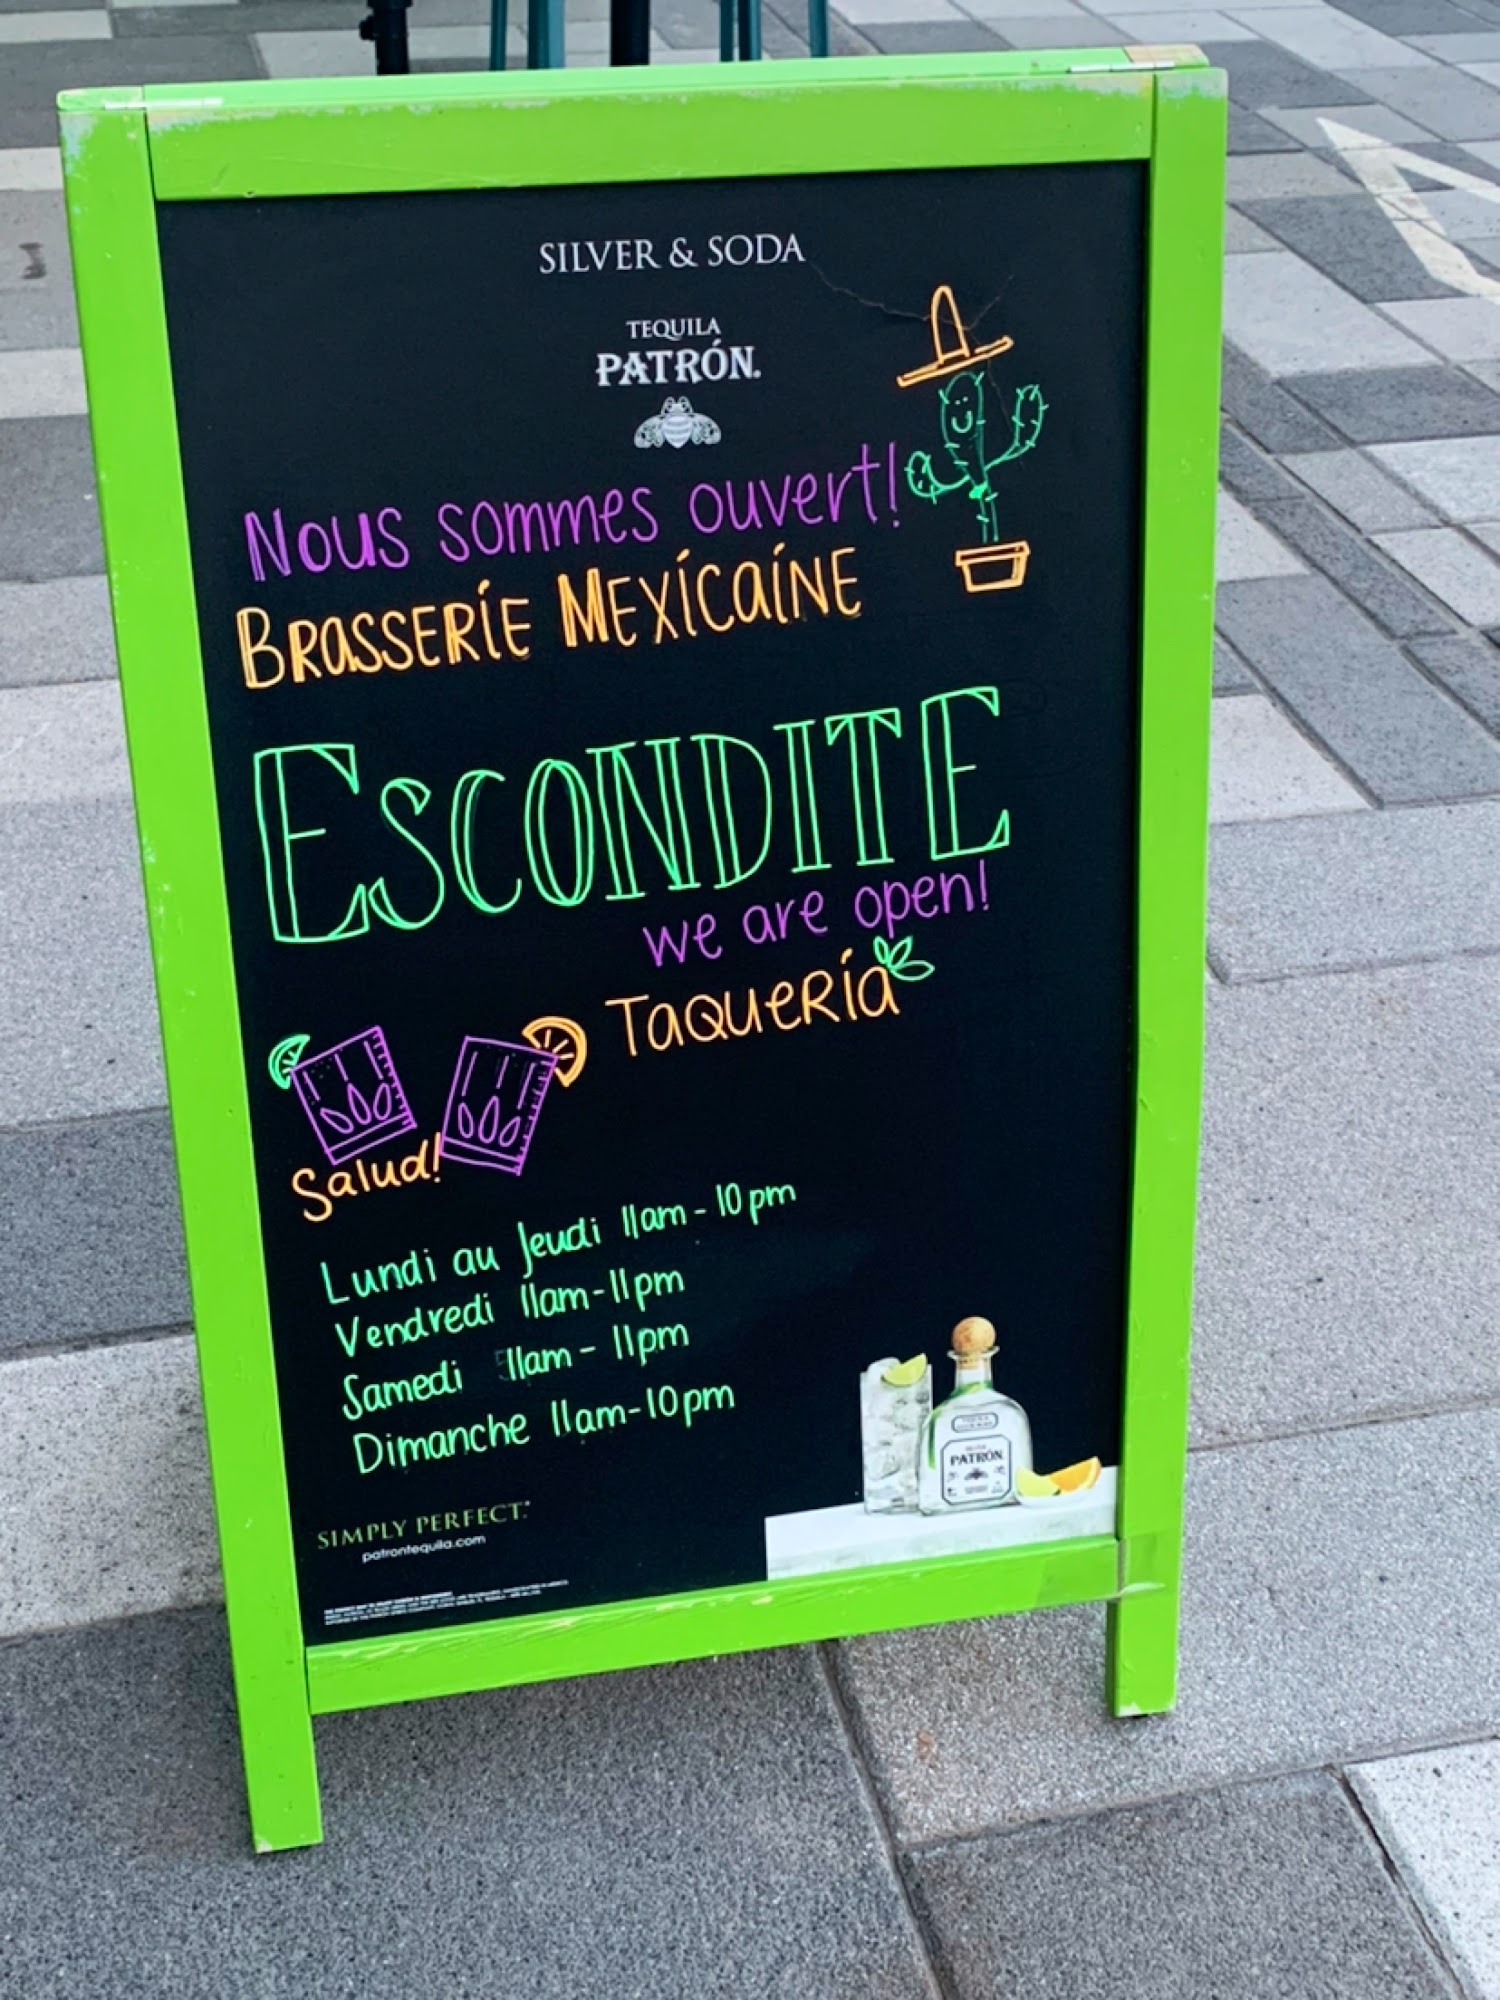 SILVER & SODA
TEQUILA
PATRÓN.
Nous sommes ouvert!
BRASSERIE MEXICAINE
ESCONDITE
we are open!
TAQUERÍA
Salud!
Lundi au Jeudi 11am - 10pm
Vendredi 11am - 11pm
Samedi 11am - 11pm
Dimanche 11am - 10pm
PATRÓN
SIMPLY PERFECT.
patrontequila.com